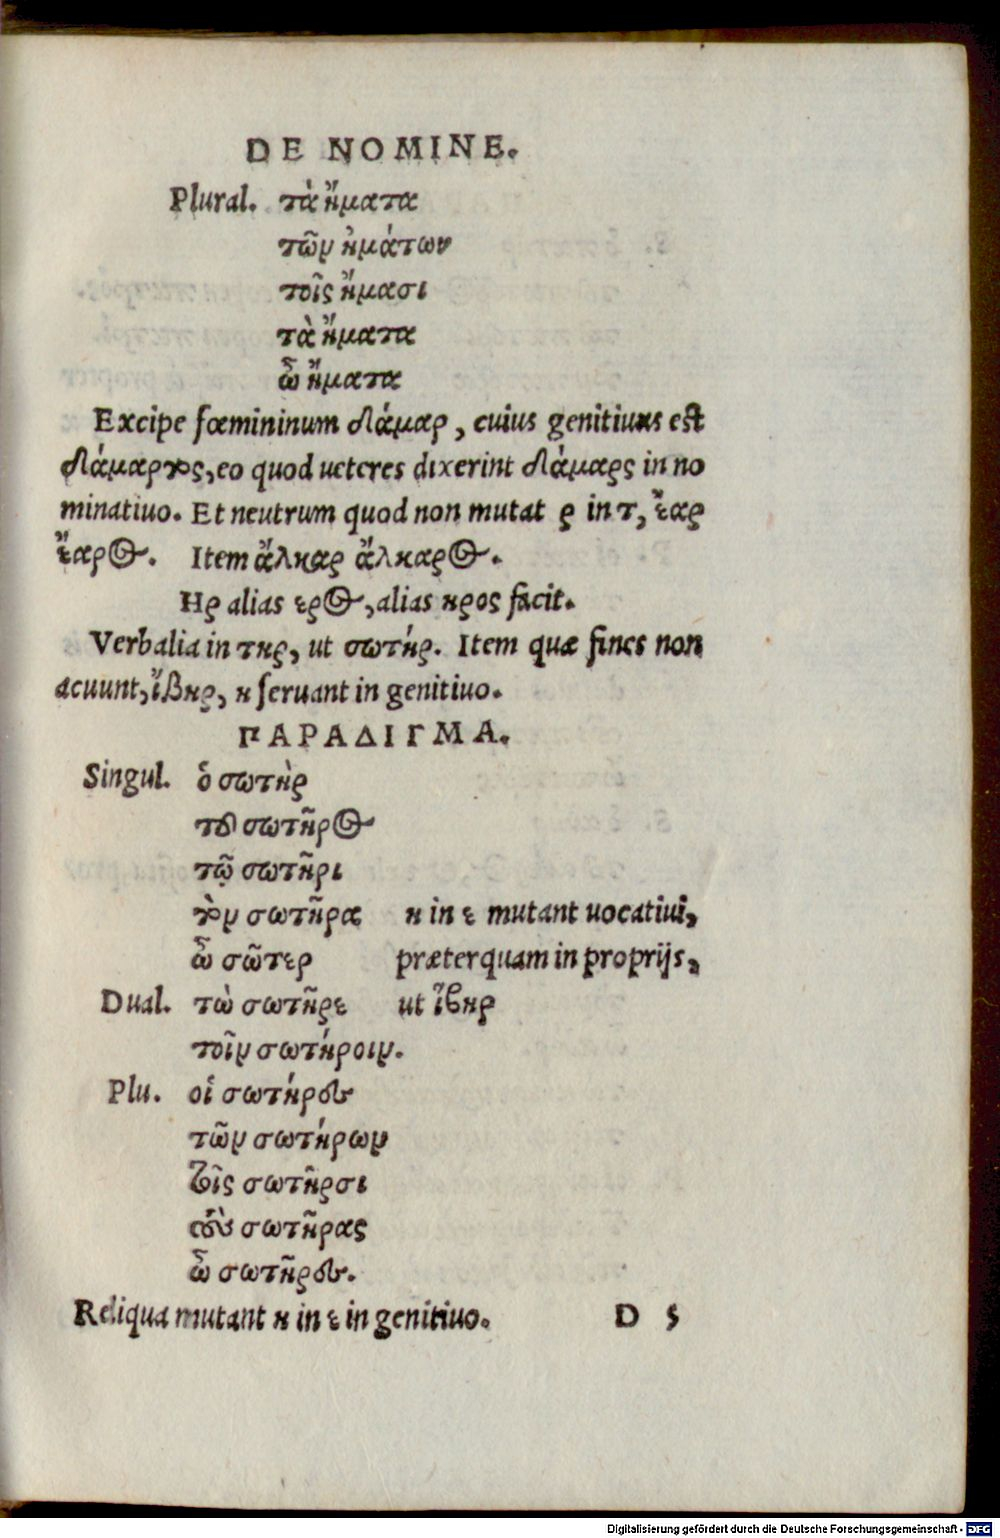 DE NOMINE.
Plural. τὰ ἤματα
τῶν ἠμάτων
τοῖς ἤμασι
τὰ ἤματα
ὦ ἤματα
Excipe fœmininum δάμαρ, cuius genitiuus est
δάμαρτος, eo quod ueteres dixerint δάμαρς in no
minatiuo. Et neutrum quod non mutat ρ in τ, ἔαρ
ἔαρος. Item ἄλκαρ ἄλκαρος.
Ηρ alias ερος, alias ηρος facit.
Verbalia in της, ut σωτήρ. Item quæ fines non
acuunt, ἴβηρ, η seruant in genitiuo.
ΠΑΡΑΔΙΓΜΑ.
Singul. ὁ σωτὴρ
τοῦ σωτῆρος
τῷ σωτῆρι
τὸν σωτῆρα η in ε mutant uocatiui,
ὦ σῶτερ præterquam in proprijs,
Dual. τὼ σωτῆρε ut ἴβηρ
τοῖν σωτήροιν.
Plu. οἱ σωτήρες
τῶν σωτήρων
τοῖς σωτῆρσι
τοὺς σωτῆρας
ὦ σωτῆρες.
Reliqua mutant η in ε in genitiuo. D 5
Digitalisierung gefördert durch die Deutsche Forschungsgemeinschaft - DFG